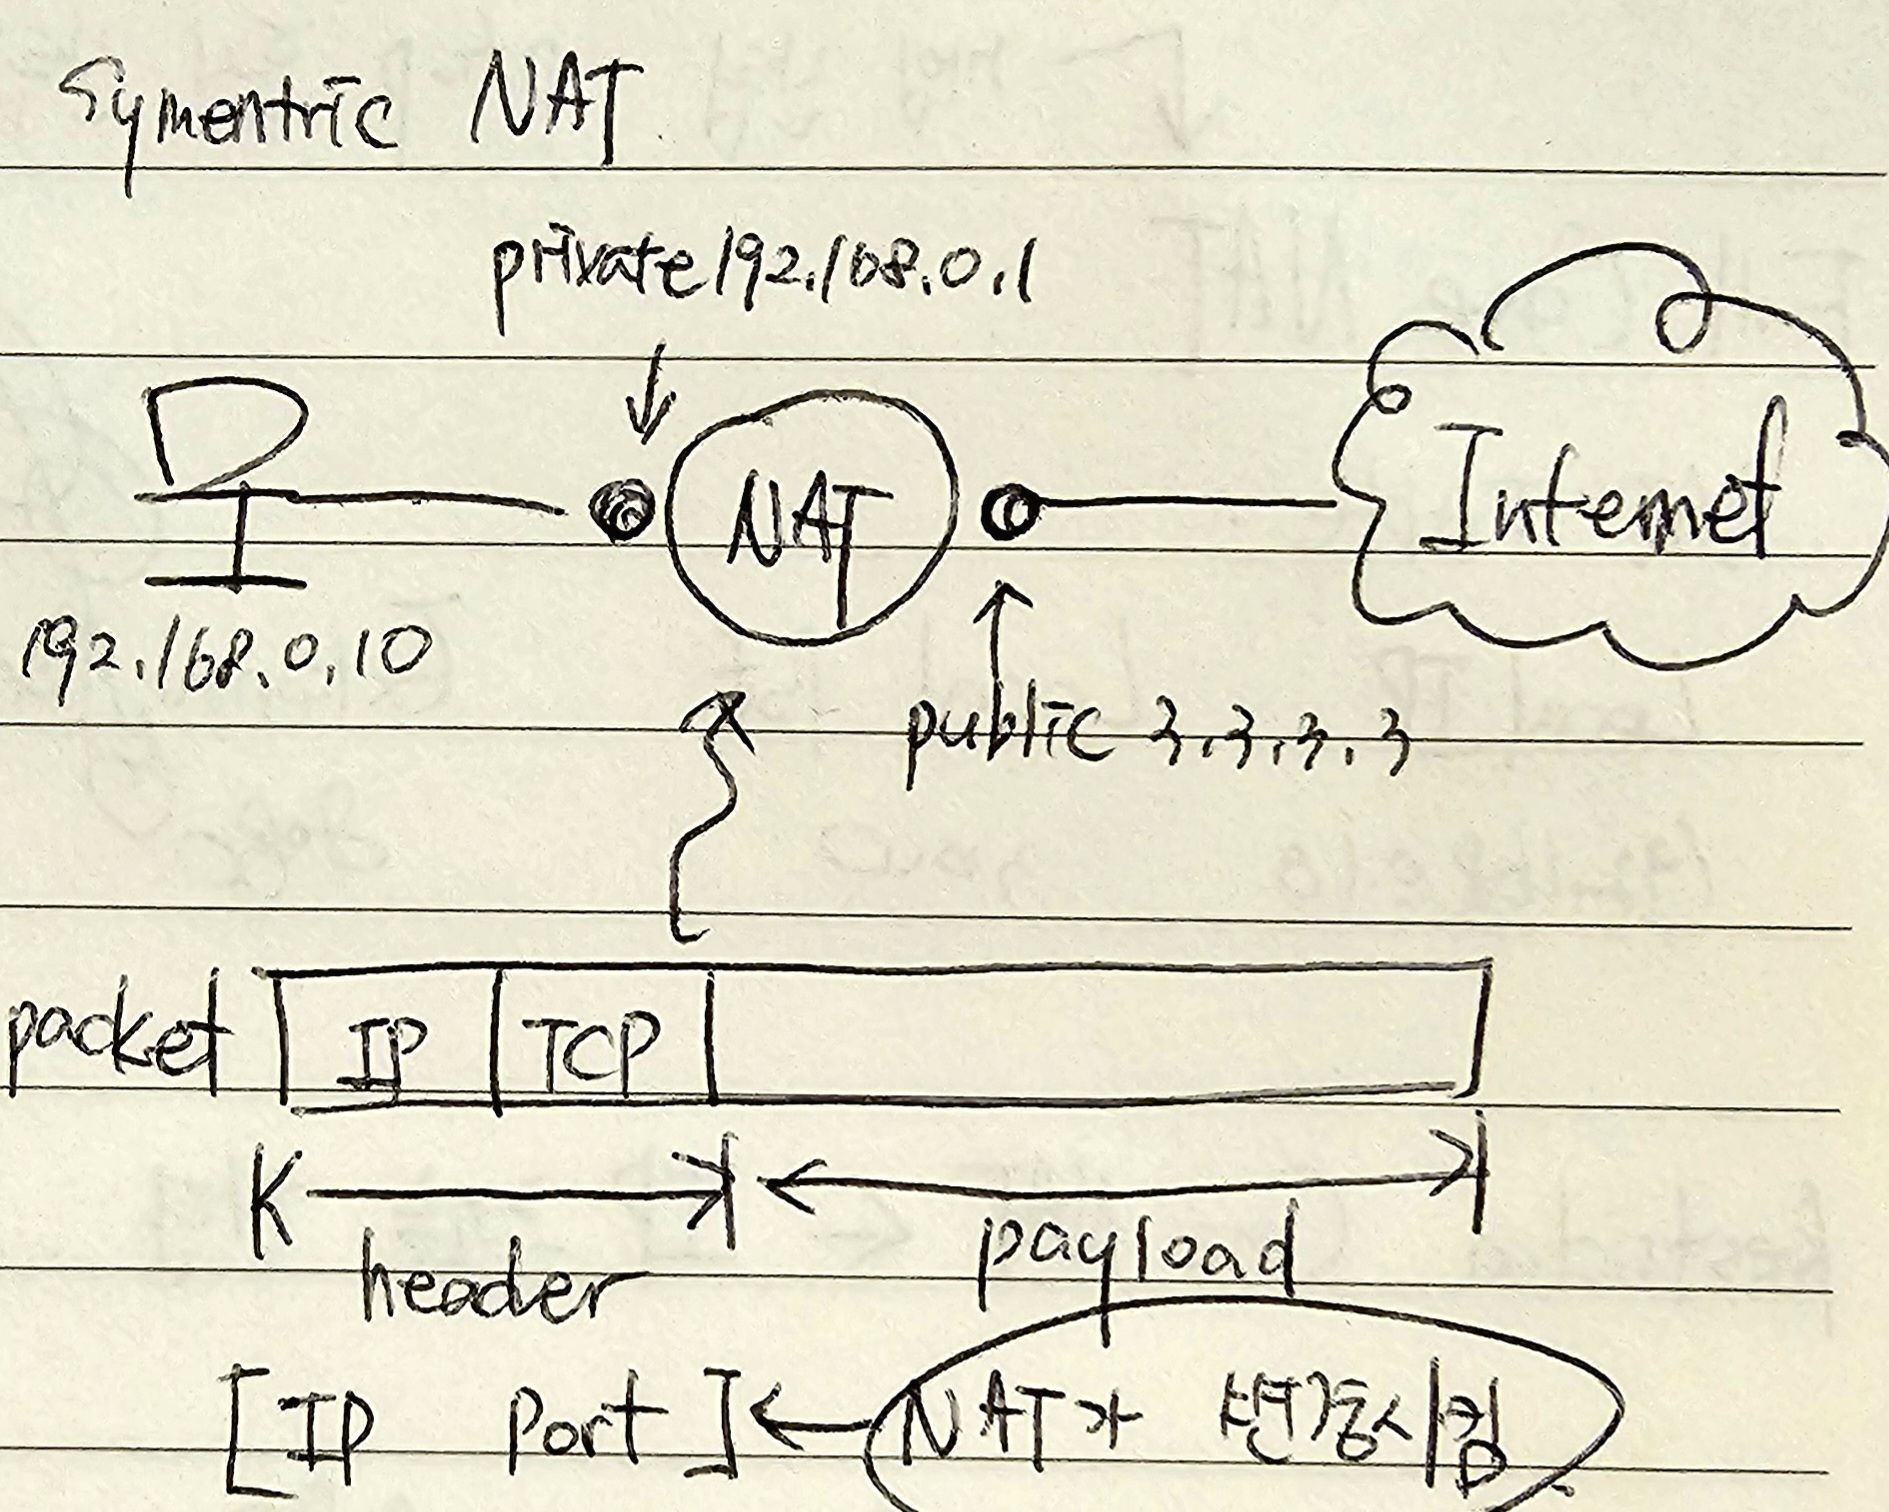 Symentric NAT
private 192.168.0.1
NAT
Internet
192.168.0.10
public 3.3.3.3
packet IP TCP
header
payload
[IP Port] ← NAT가 변동시킴